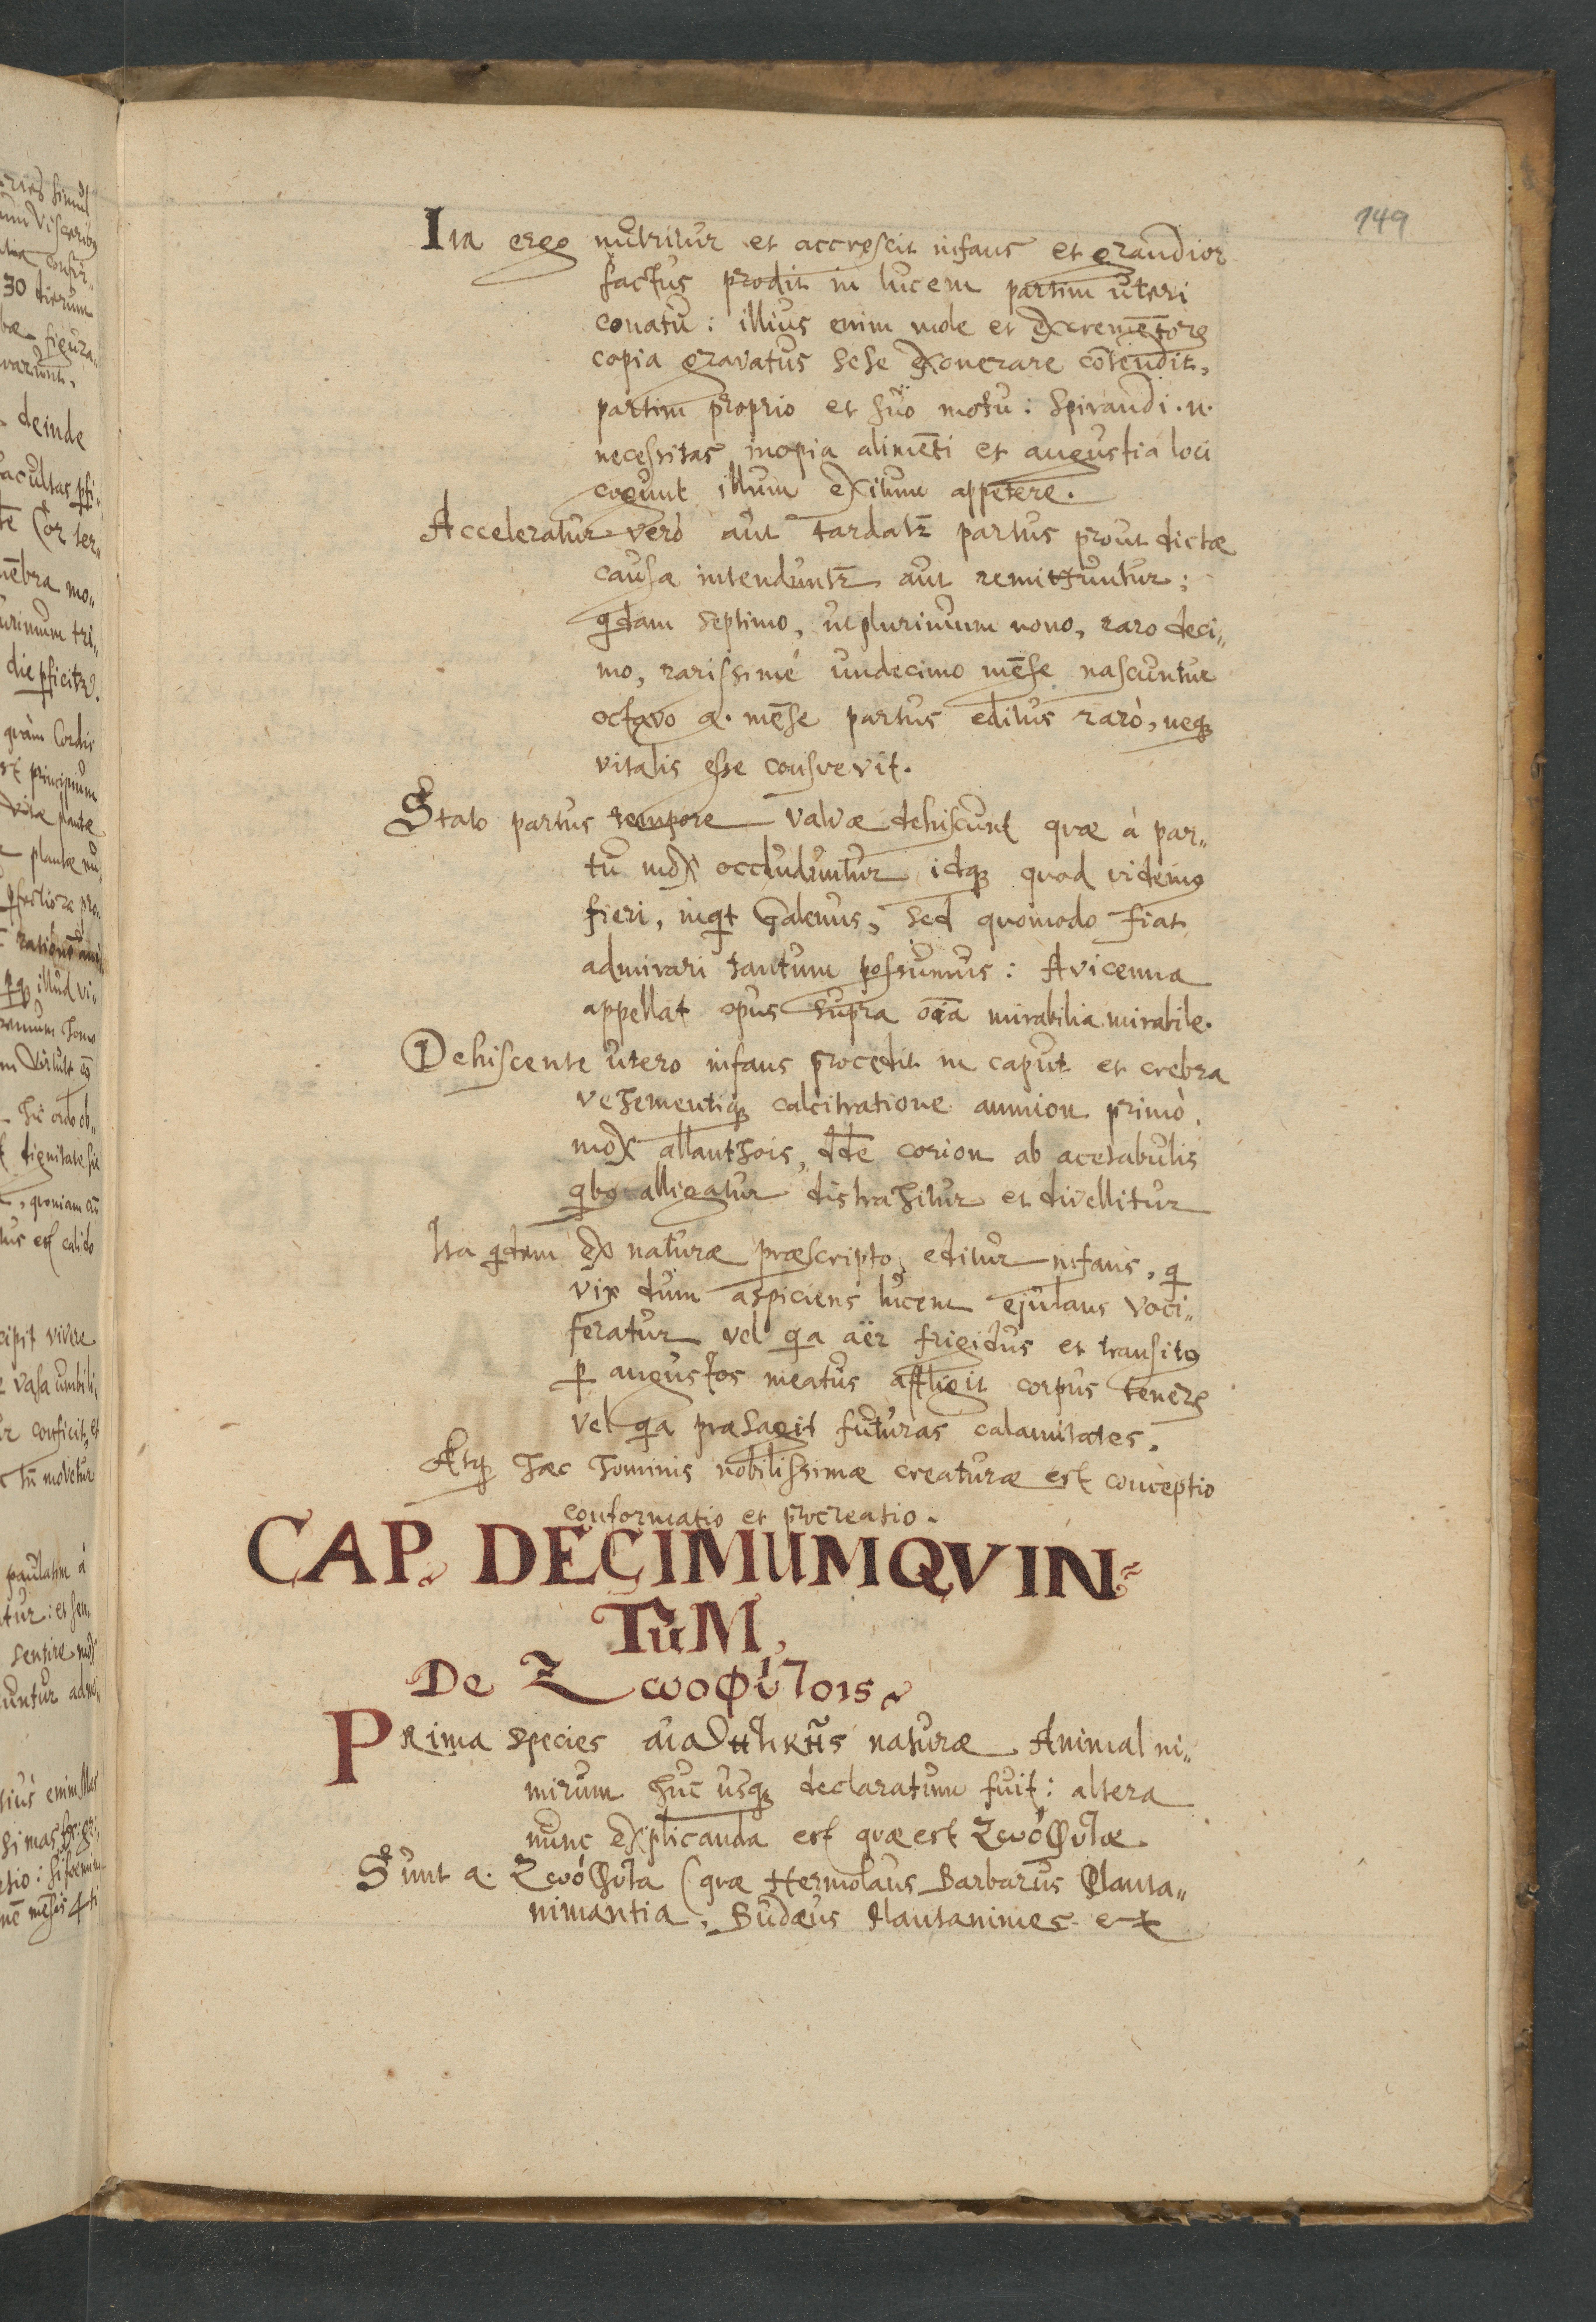 149
Ita ergo nutritur et accrescit infans et grandior
factus prodit in lucem partim uteri
conatu: illius enim mole et excremētorꝝ
copia gravatus sese exonerare cōtendit,
partim proprio et suo motu: Spirandi .n.
necessitas inopia alimēti et angustia loci
cogunt illum exitum appetere.
Acceleratur verò aut tardatꝛ partus prout dictæ
causæ intenduntꝛ aut remittuntur:
qdam septimo, ut plurimum nono, raro deci„
mo, rarissimé undecimo mēse nascuntur
octavo a. mēse partus editus rarò, neqꝫ
vitalis esse consuevit.
Stato partus tempore valvæ dehiscunt quæ à par„
tu mox occluduntur idqꝫ quod videmꝰ
fieri, inqt Galenus, sed quomodo fiat
admirari tantum possumus: Avicenna
appellat opus supra oīa mirabilia mirabile.
Dehiscente utero infans procedit in caput et crebra
vehementiqꝫ calcitratione amnion primò,
mox allanthois, dde corion ab acetabulis
qbꝰ alligatur distrahitur et divellitur
Ita qdem ex naturæ præscripto editur infans, q
vix dum aspiciens lucem ejulans voci„
feratur vel qa aër frigidus et transitꝰ
ꝑ angustos meatus affligit corpus tenerꝝ
vel qa præsagit futuras calamitates.
Atqꝫ hæc hominis nobilissimæ creaturæ est conceptio
conformatio et procreatio.
CAP. DECIMUMQVIN„
TUM,
De Ζωοφύτοις.
Prima species αἰσθητικῆς naturæ Animal ni„
mirum huc usqꝫ declaratum fuit: altera
nunc explicanda est quæ est Ζωόφυτæ.
Sunt a. Ζωόφυτα (quæ Hermolaus Barbarus Planta„
nimantia, Budæus Plantanimes et